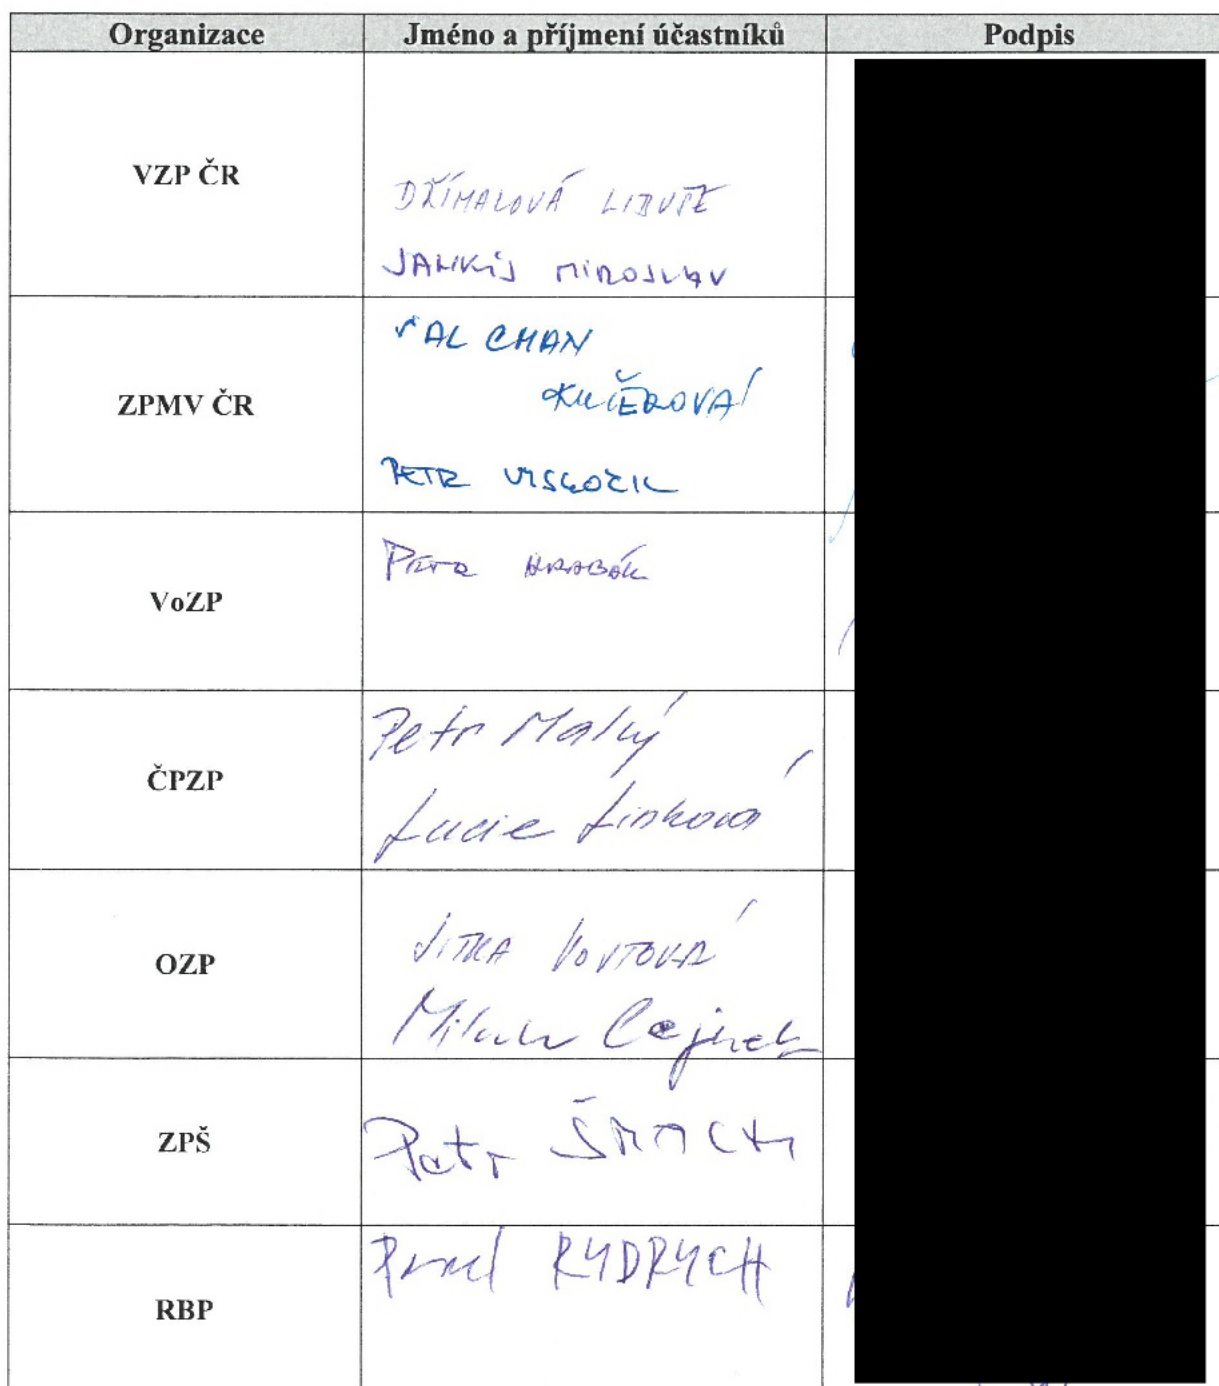 Organizace Jméno a příjmení účastníků Podpis
VZP ČR
DŘÍMALOVÁ LIBUŠE
JANKŮJ MIROSLAV
ZPMV ČR
VALCHAŘ
KUČEROVÁ
PETR VYSKOČIL
VoZP
PETR HRABÁK
ČPZP
Petr Malý
Lucie Linková
OZP
JITKA VOJTOVÁ
Milan Cajthaml
ZPŠ
Petr ŠMACH
RBP
Pavel RYDRYCH